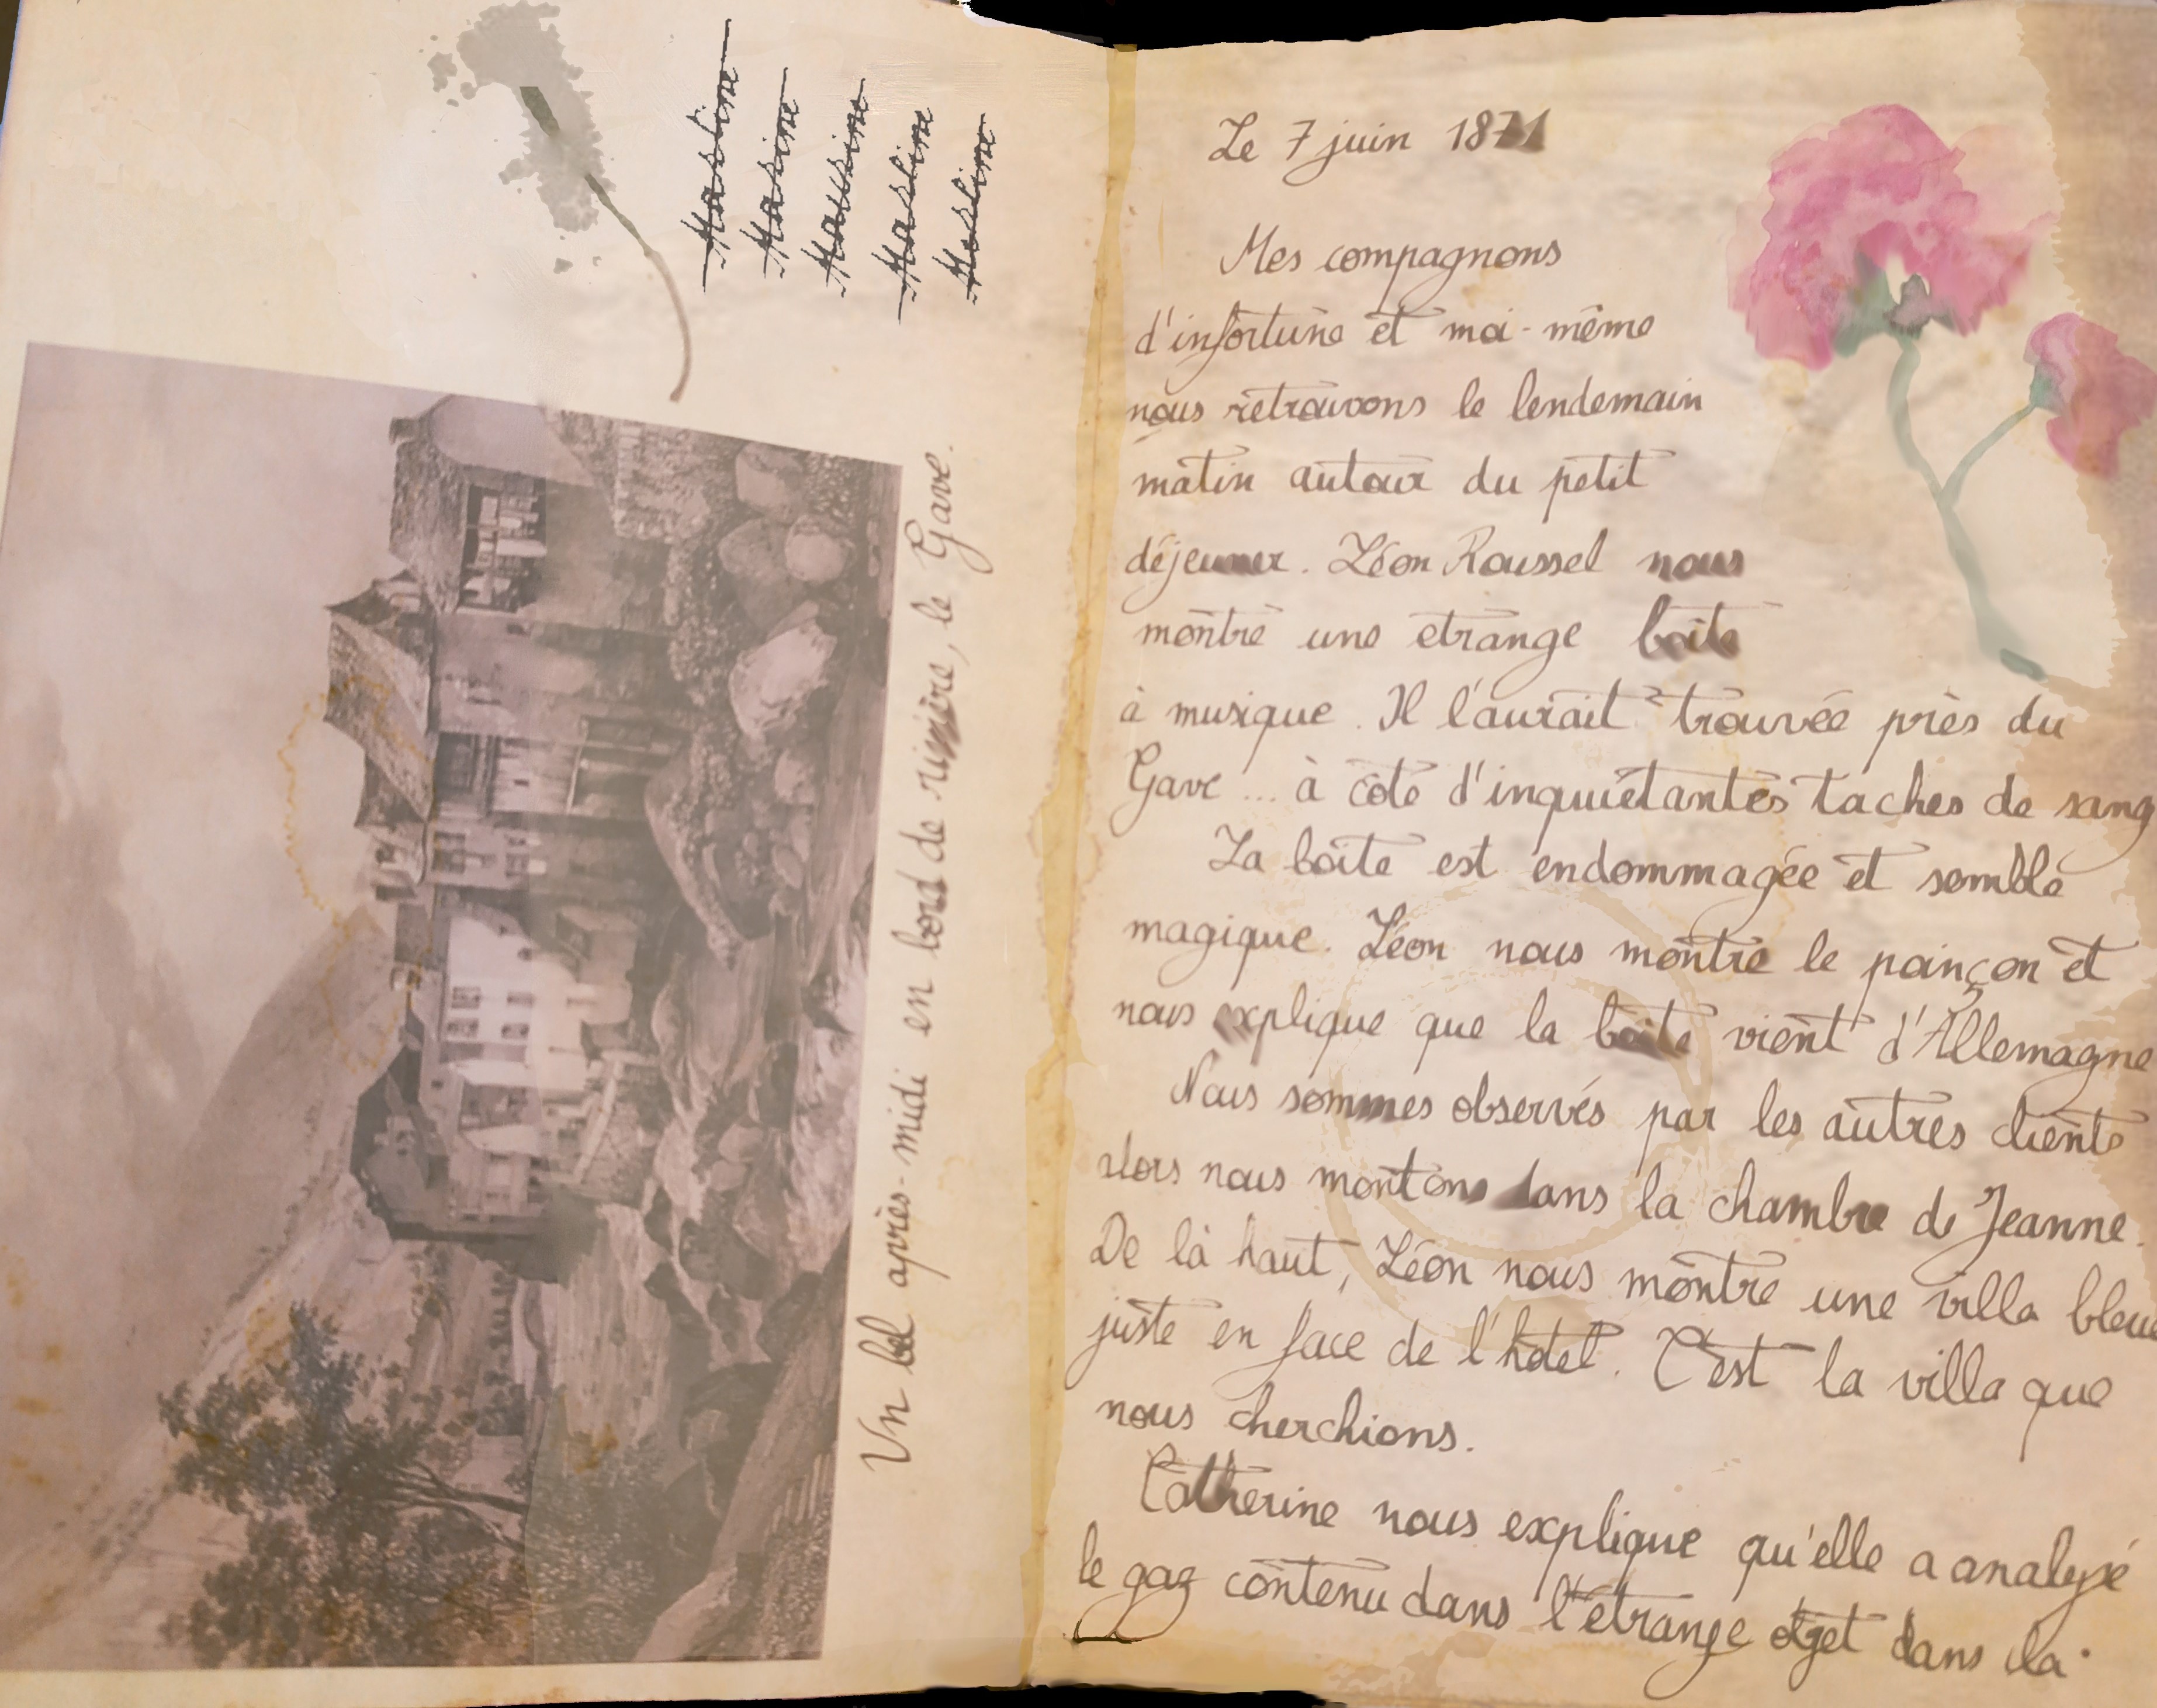 Maslime
Masime
Massime
Maslime
Meslime
Un bel après-midi en bord de rivière, le Gave.
Le 7 juin 1871
Mes compagnons
d'infortune et moi-même
nous retrouvons le lendemain
matin autour du petit
déjeuner. Léon Roussel nous
montre une etrange boite
à musique. Il l'aurait trouvée près du
Gave... à côté d'inquiétantes taches de sang
La boîte est endommagée et semble
magique. Léon nous montre le poinçon et
nous explique que la boite vient d'Allemagne
Nous sommes observés par les autres clients
alors nous montons dans la chambre de Jeanne.
De là haut, Léon nous montre une villa bleue
juste en face de l'hôtel. C'est la villa que
nous cherchions.
Catherine nous explique qu'elle a analysé
le gaz contenu dans l'étrange objet dans la